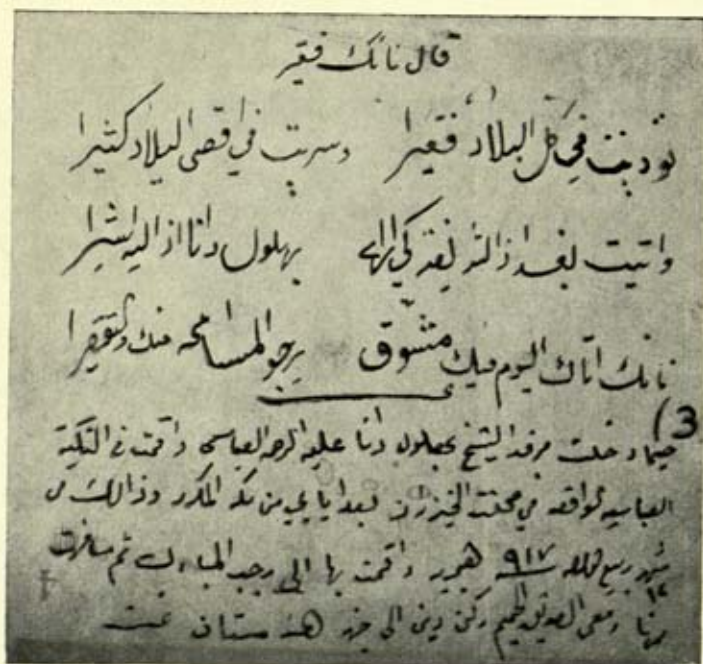 قال نانك فقير
نوديت في كل البلاد فقيرا وسريت في اقصى البلاد كثيرا
واتيت بغداد بهلول دانا اذ اليه اشيرا
نانك اتاك اليوم فيك مشوق يرجو المسامحه منك والتقصيرا
(3
حينما دخلت مرقد الشيخ بهلول دانا عليه الرحمه العباسي واقمت في التكية
العباسيه الواقعه في محلت الخيزران بعد ايابي من مكه المكرمه وذالك من
شهر ربيع ٩١٧ هجريه واقمت بها الى رجب المبارك ثم سافرت
١٢
ومعي الصديق الحميم ركن دين الى هندستان